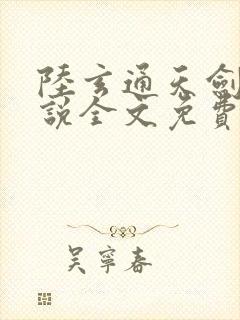 陸玄通天劍
說全文免費
吳寧春